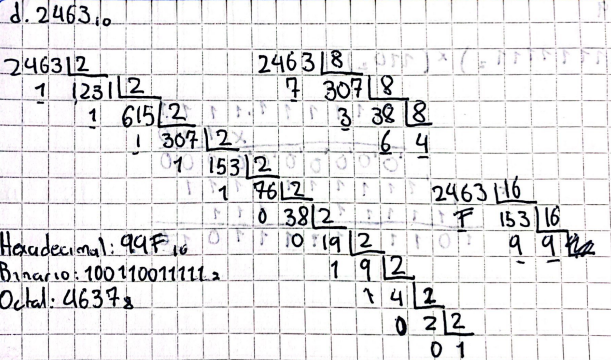 d. 2463₁₀
2463 |2
1 1231 |2
1 615 |2
1 307 |2
1 153 |2
1 76 |2
0 38 |2
0 19 |2
1 9 |2
1 4 |2
0 2 |2
0 1
2463 |8
7 307 |8
3 38 |8
6 4
2463 |16
F 153 |16
9 9
Hexadecimal: 99F₁₆
Binario: 100110011111₂
Octal: 4637₈